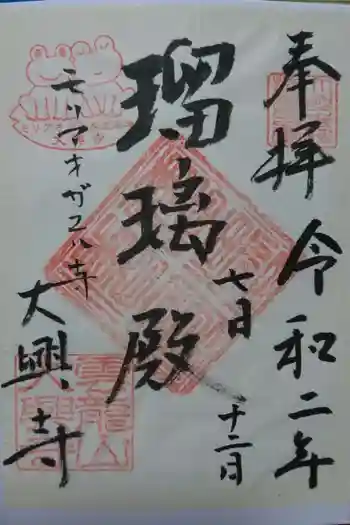 奉拝 令和二年
七月 十二日
瑠璃殿
モリアオガエル寺
大興寺
雲龍山
大興寺